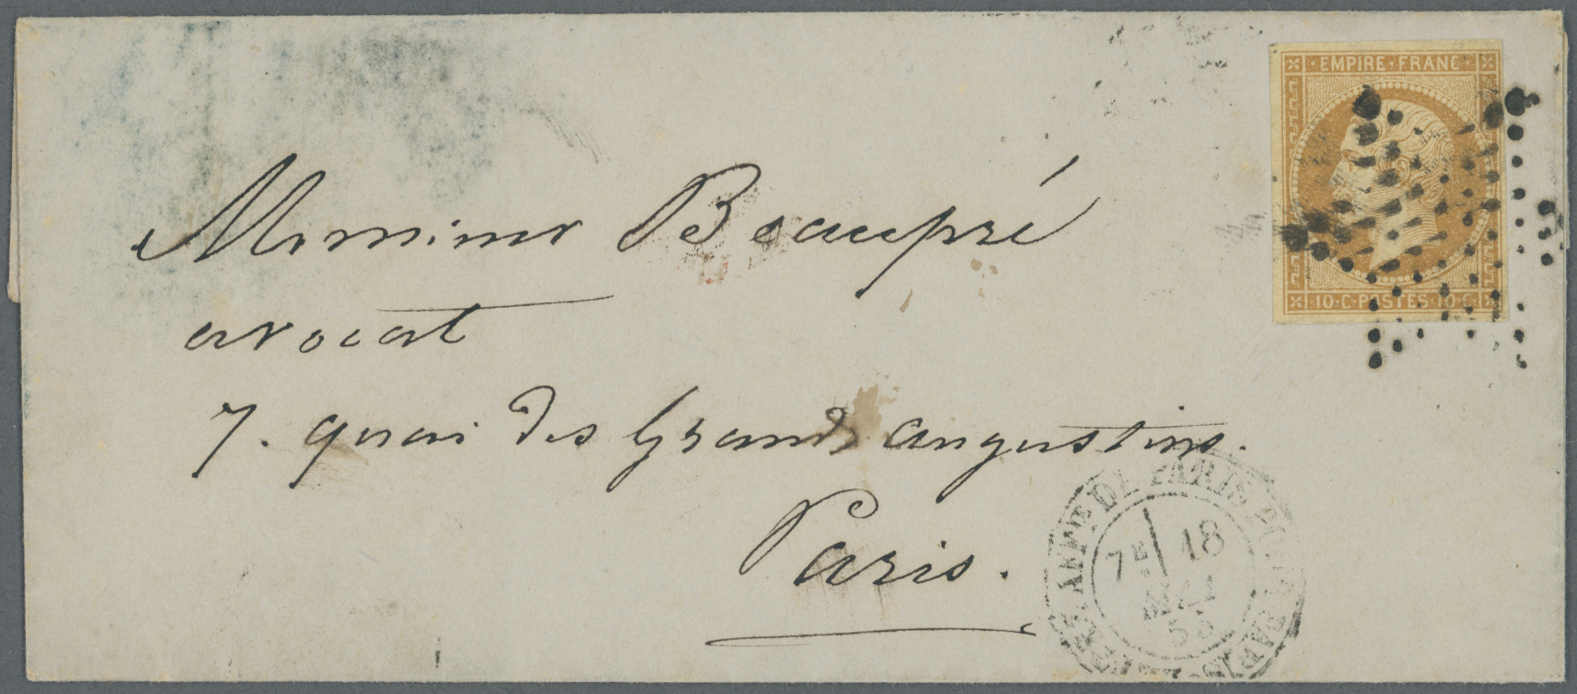 EMPIRE·FRANC·
10·C·POSTES·10·C·
Monsieur Beaupré
avocat
7. quai des Grands augustins.
Paris.
DE PARIS
7E 18